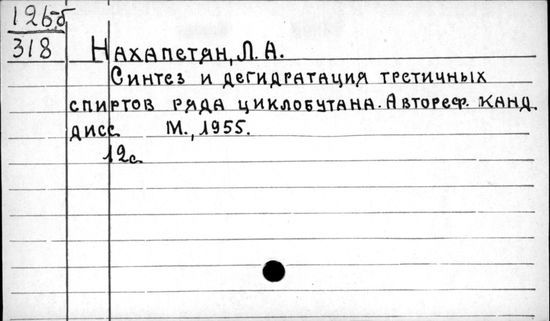 126-б
318
Нахапетян, Л. А.
Синтез и дегидратация третичных
спиртов ряда циклобутана. Автореф. канд.
дисс М., 1955.
12с